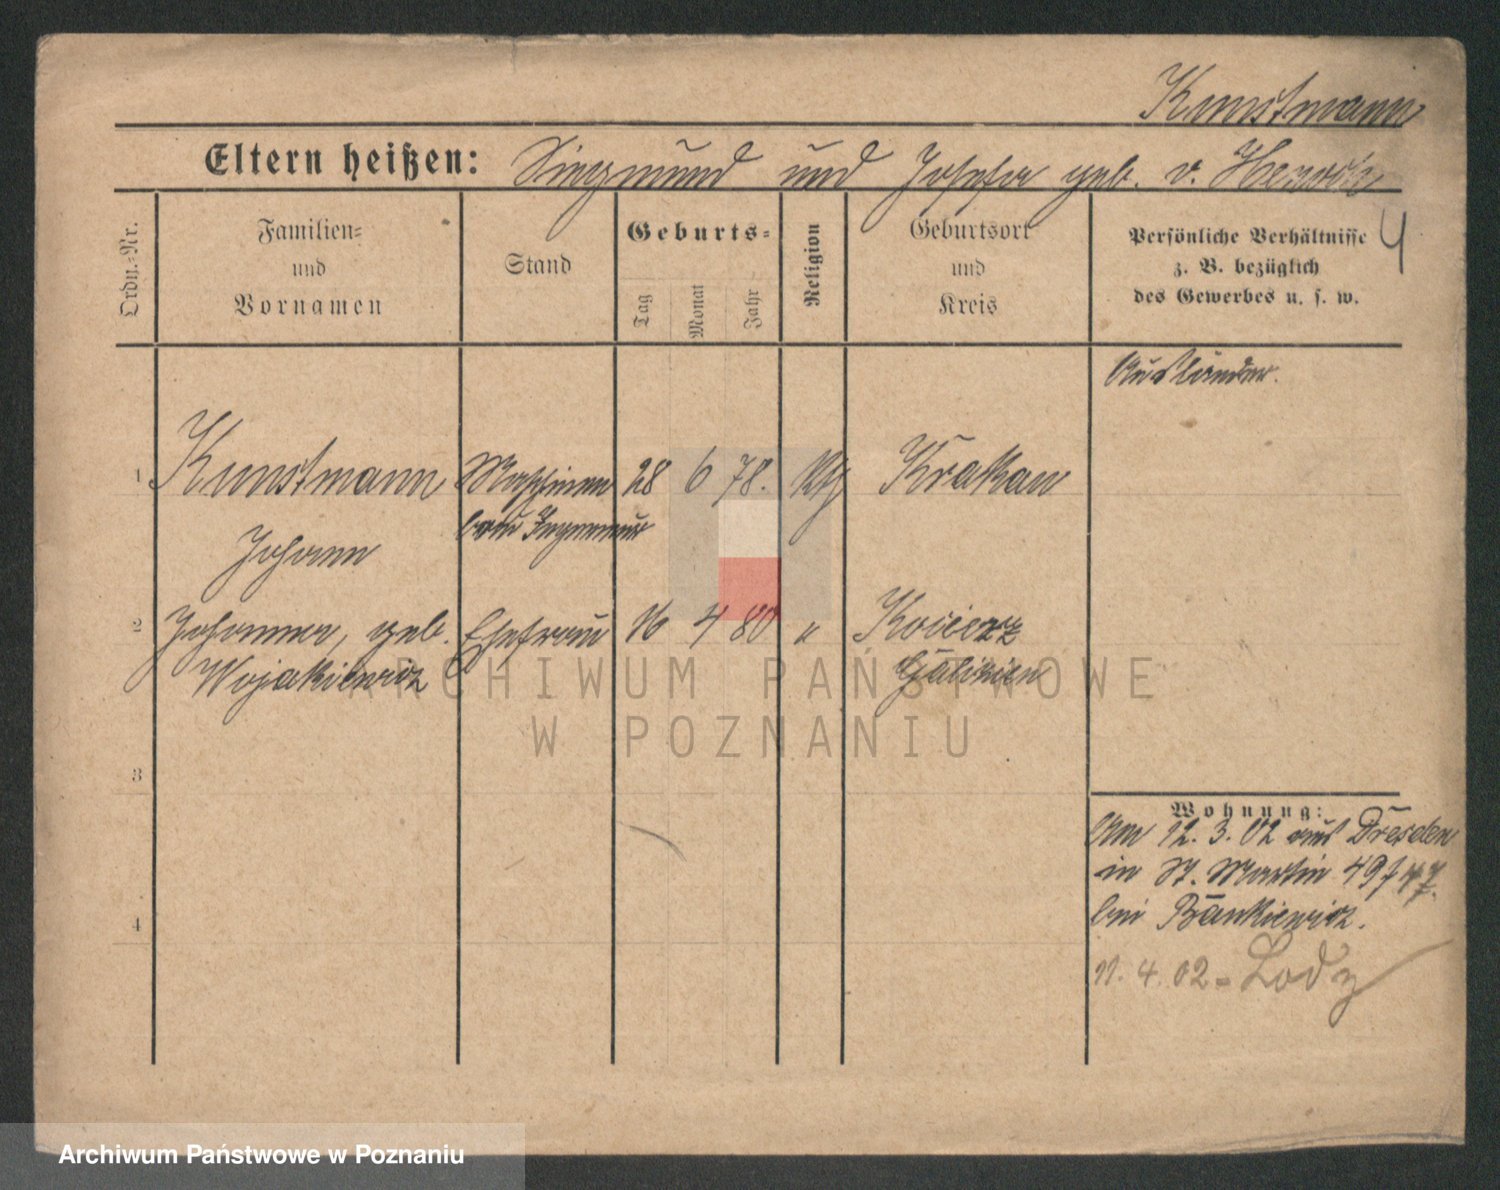 Kunstmann
Eltern heißen: Siegmund und Josefa geb. v.
4
Ordn.-Nr.
Familien- und Vornamen
Stand
Geburts-
Tag Monat Jahr
Religion
Geburtsort und Kreis
Persönliche Verhältnisse
z. B. bezüglich
des Gewerbes u. s. w.
Ausländer.
1 Kunstmann Maschinen 28 6 78. kth Krakau
bau Ingenieur
Johann
2 Johanna, geb. Ehefrau 16 4 80 "
Wojakiewicz Galizien
3
Wohnung:
Am 12. 3. 02 aus Dresden
in St. Martin
bei Bankiewicz.
4
11. 4. 02 - Lodz
ARCHIWUM PAŃSTWOWE
W POZNANIU
Archiwum Państwowe w Poznaniu